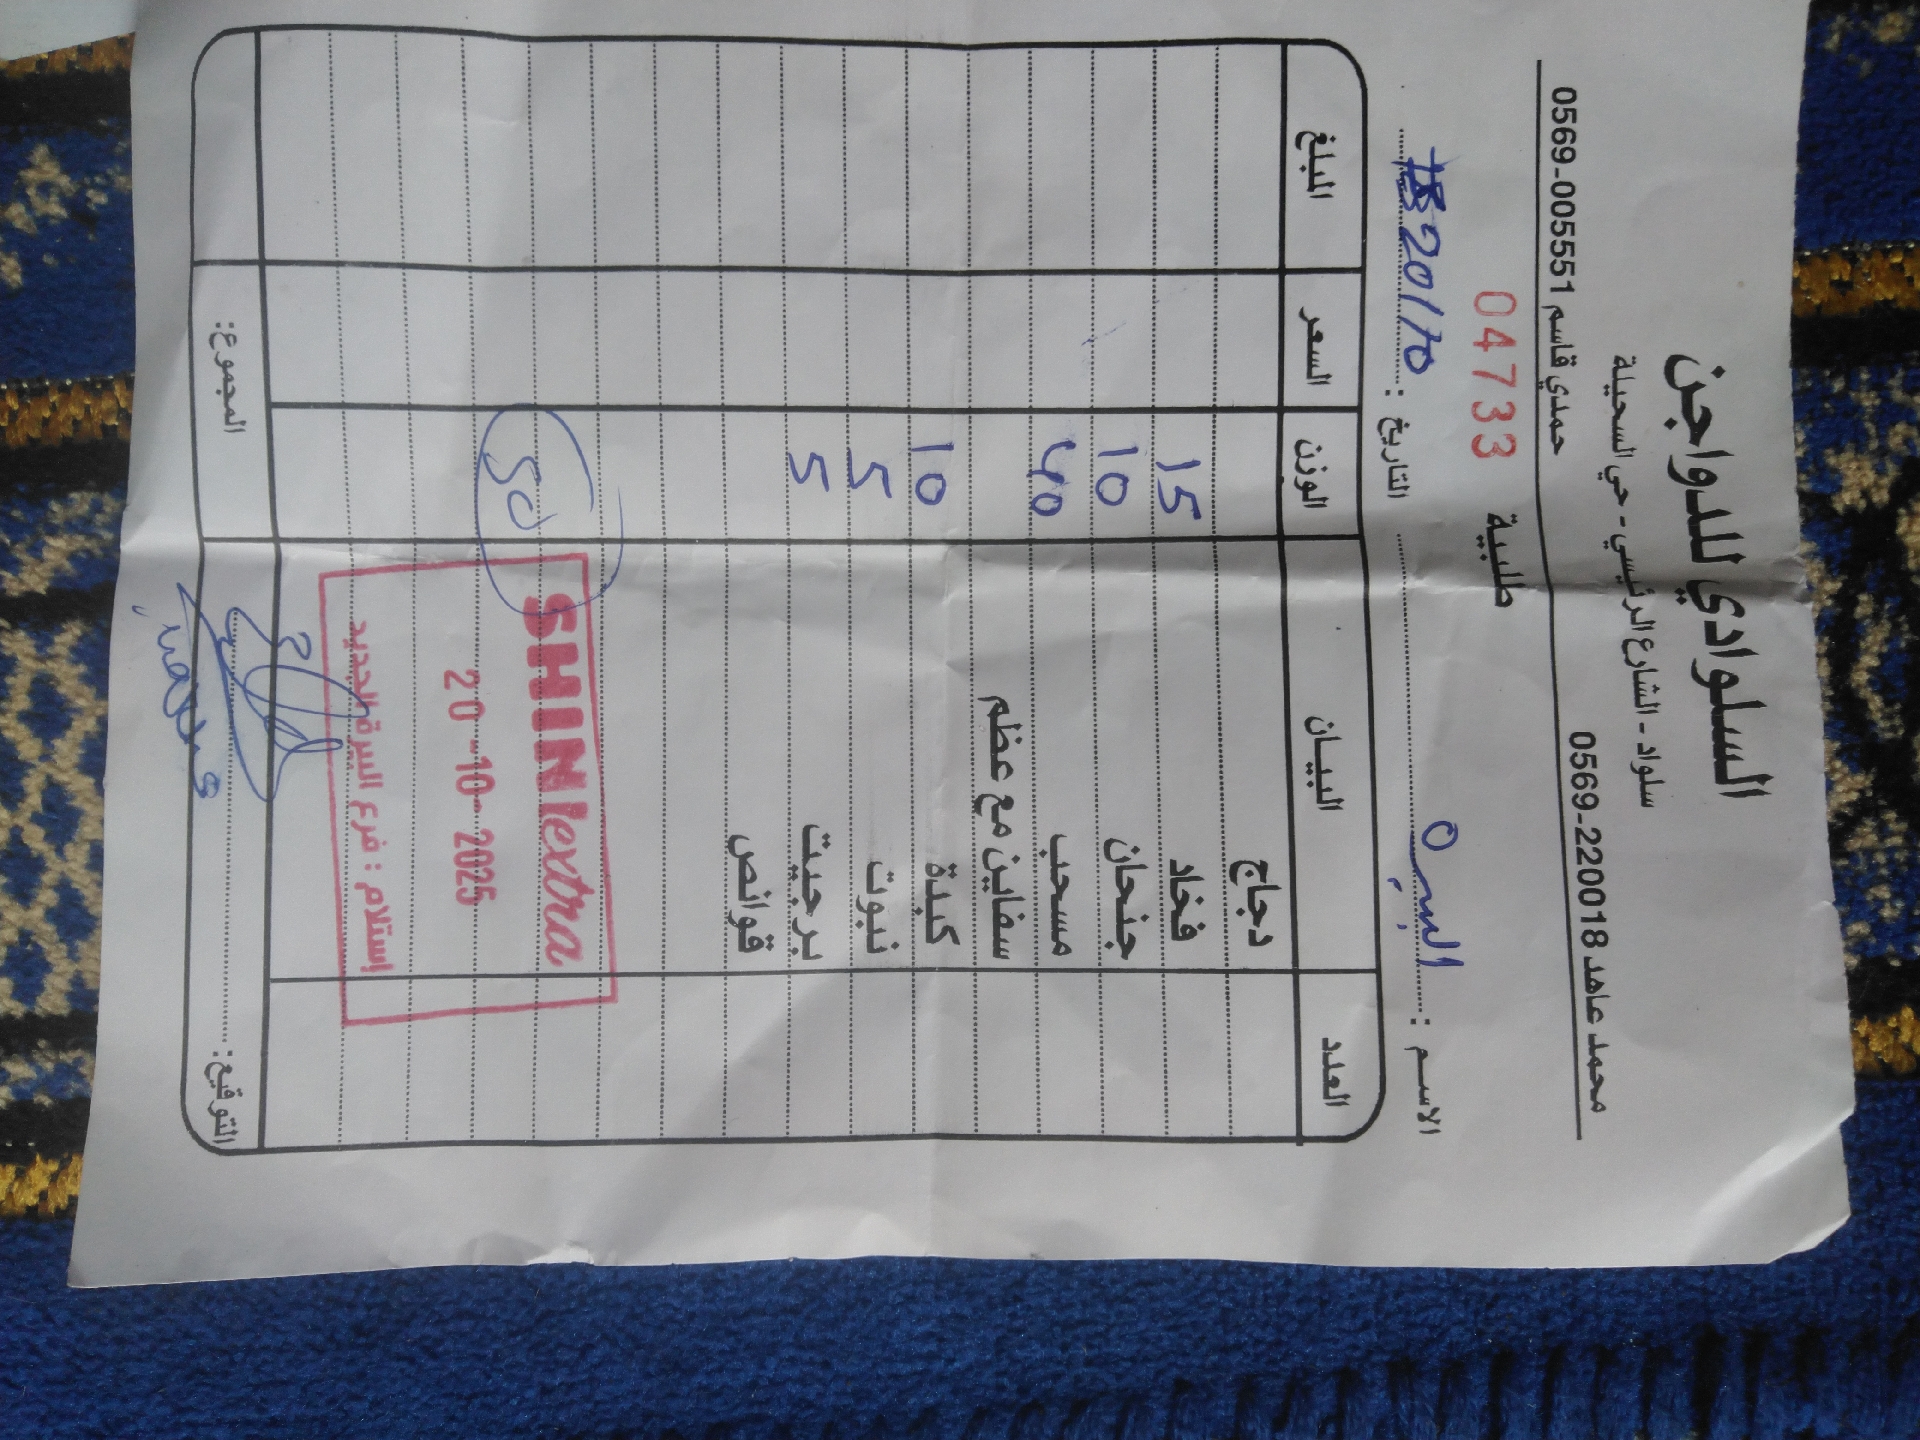 السلوادي للدواجن
سلواد - الشارع الرئيسي - حي السحيلة
محمد عاهد 0569-220018 حمدي قاسم 0569-005551
طلبية 04733
الاسم : التاريخ : 20/10
العدد البيـــان الوزن السعر المبلغ
دجاج
فخاد 15
جنحان 10
مسحب 40
سفاين مع عظم
كبدة 10
نبوت 5
برجيت 5
قوانص
SHINIextra
20-10-2025
إستلام : فرع البيرة الجديد
التوقيع: المجموع: